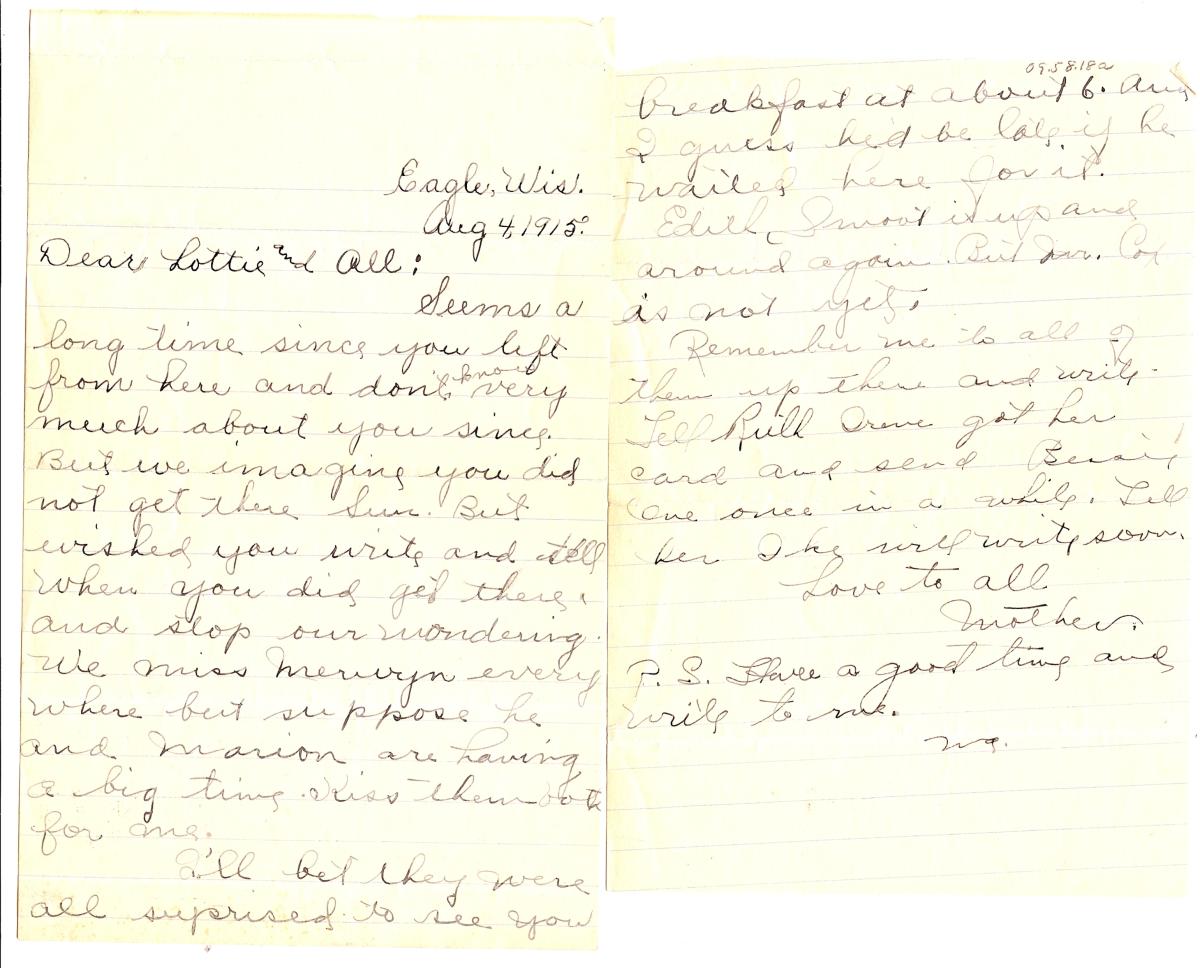 Eagle, Wis.
Aug 4, 1915.
Dear Lottie and All:
Seems a
long time since you left
from here and don't know very
much about you since.
But we imagine you did
not get there Sun. But
wished you write and tell
when you did get there,
and stop our wondering.
We miss Merwyn every
where but suppose he
and Marion are having
a big time. Kiss them both
for me.
I'll bet they were
all suprised to see you
09.58.18a
breakfast at about 6. And
I guess he'd be late if he
waited here for it.
Edith Smoot is up and
around again. But Mr. Cox
is not yet.
Remember me to all of
them up there and write.
Tell Ruth Irene got her
card and send
one once in a while. Tell
her I will write soon.
Love to all
Mother.
P.S. Have a good time and
write to me.
Ma.